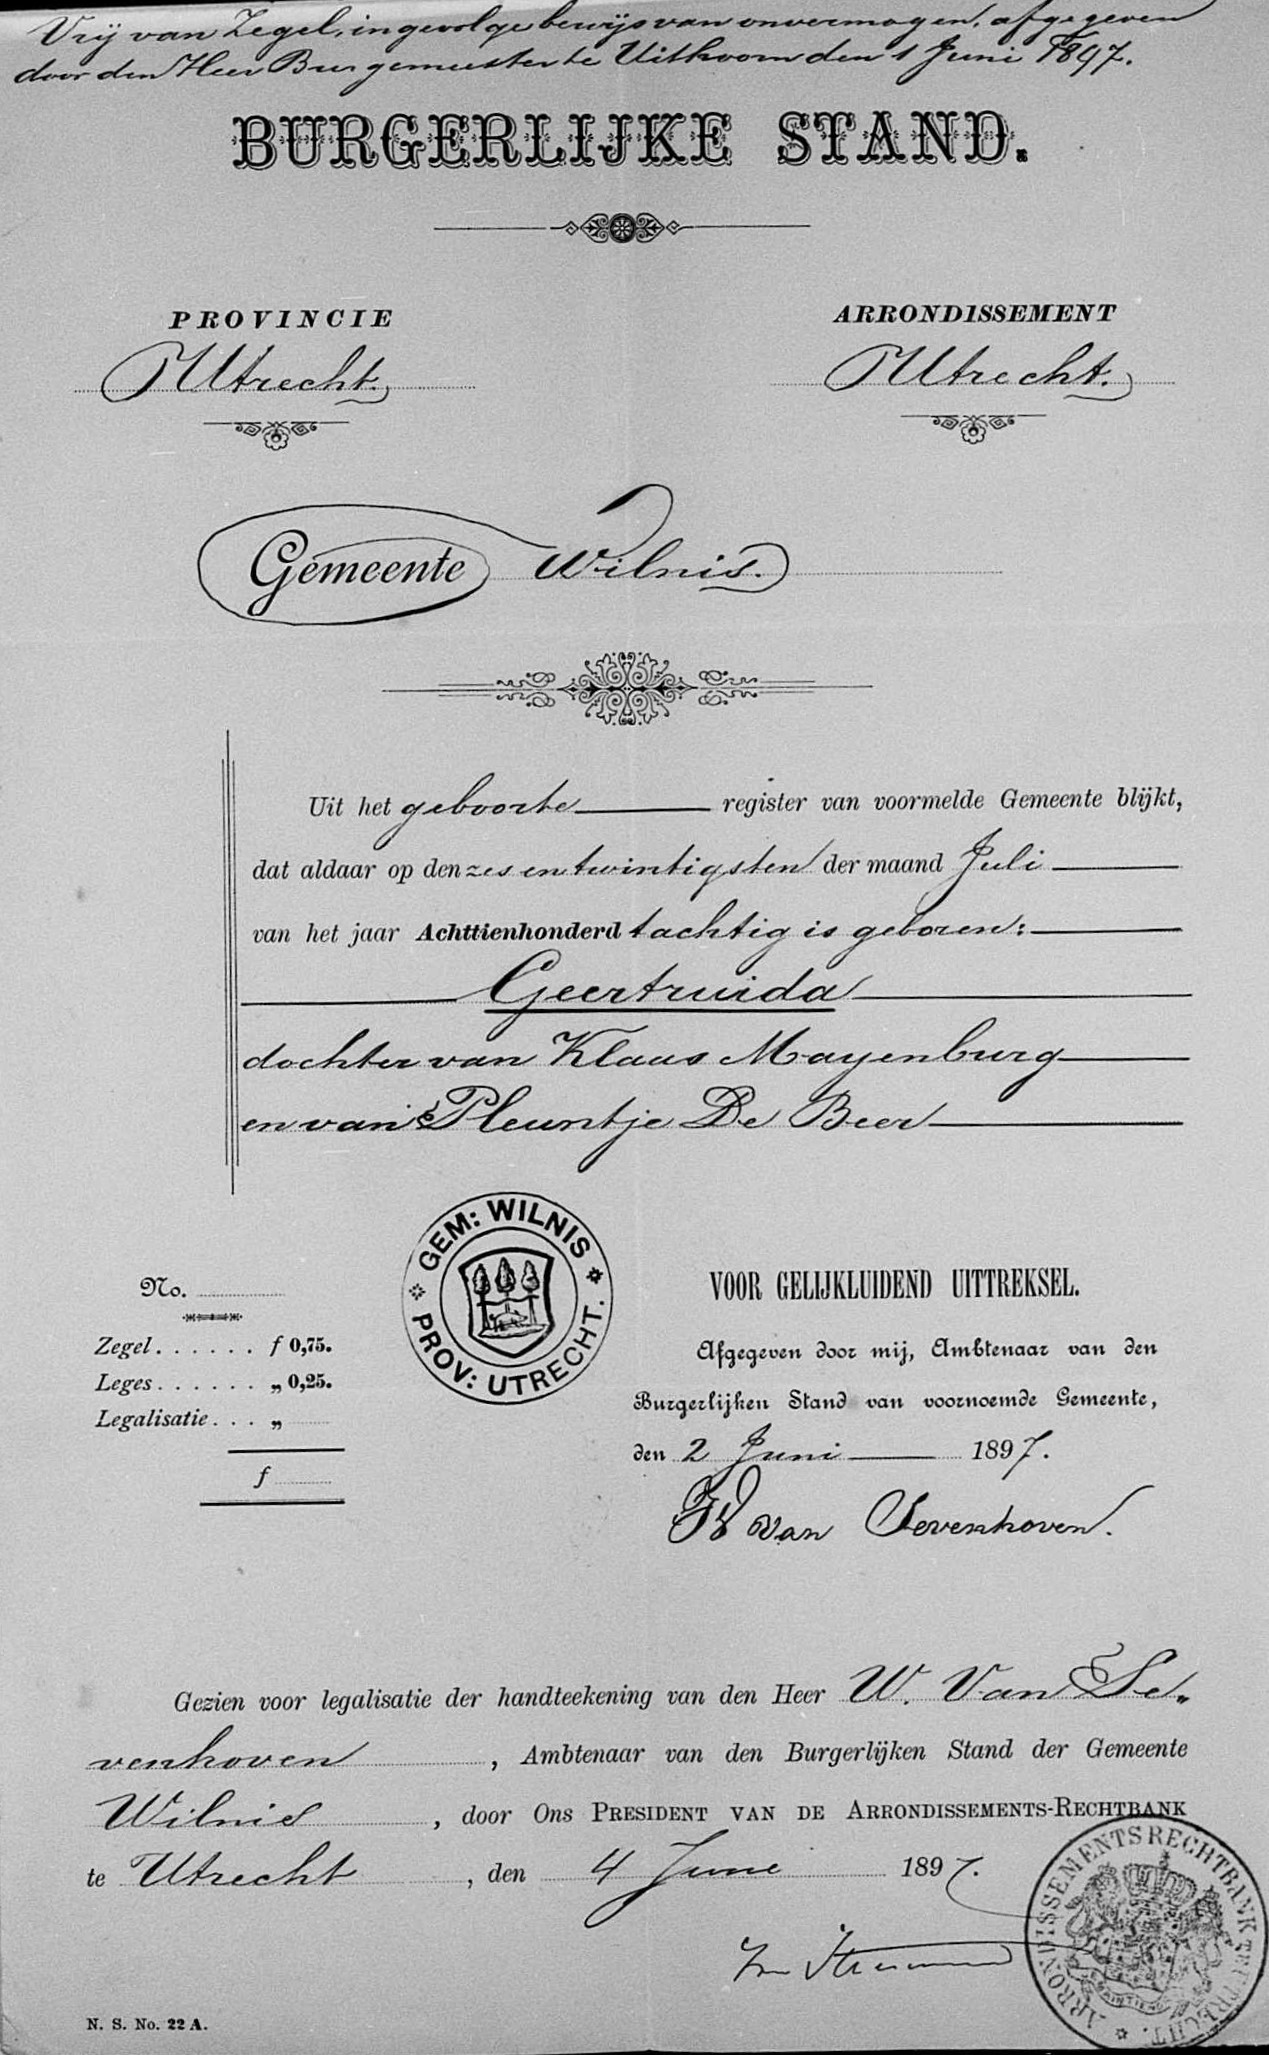 Vrij van Zegel, ingevolge bewijs van onvermogen, afgegeven
door den Heer Burgemeester te Uithoorn den 1 Juni 1897.
BURGERLIJKE STAND.
PROVINCIE
Utrecht.
ARRONDISSEMENT
Utrecht.
Gemeente Wilnis.
Uit het geboorte register van voormelde Gemeente blijkt,
dat aldaar op den zes en twintigsten der maand Juli
van het jaar Achttienhonderd tachtig is geboren:
Geertruida
dochter van Klaas Mayenburg
en van Pleuntje De Beer
GEM: WILNIS
PROV: UTRECHT.
No.
Zegel . . . . . . f 0,75.
Leges . . . . . . „ 0,25.
Legalisatie . . . „
f
VOOR GELIJKLUIDEND UITTREKSEL.
Afgegeven door mij, Ambtenaar van den
Burgerlijken Stand van voornoemde Gemeente,
den 2 Juni 1897.
van Sevenhoven.
Gezien voor legalisatie der handteekening van den Heer W. Van Se„
venhoven, Ambtenaar van den Burgerlijken Stand der Gemeente
Wilnis, door Ons PRESIDENT VAN DE ARRONDISSEMENTS-RECHTBANK
te Utrecht, den 4 Juni 1897.
ARRONDISSEMENTS RECHTBANK TE UTRECHT.
N. S. No. 22 A.